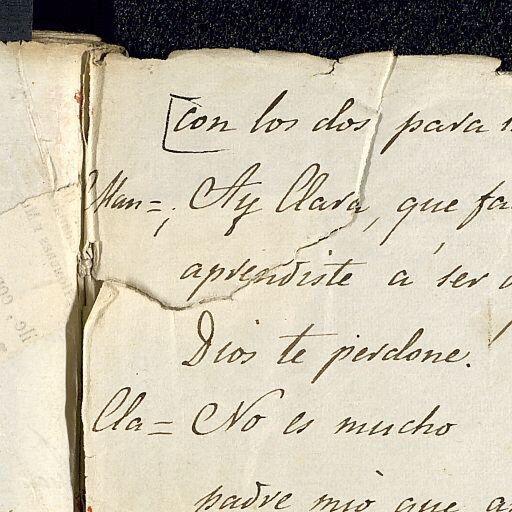 [con los dos para
Man = ¡Ay Clara, que
aprendiste á ser
Dios te perdone.
Cla = No es mucho
padre mio que